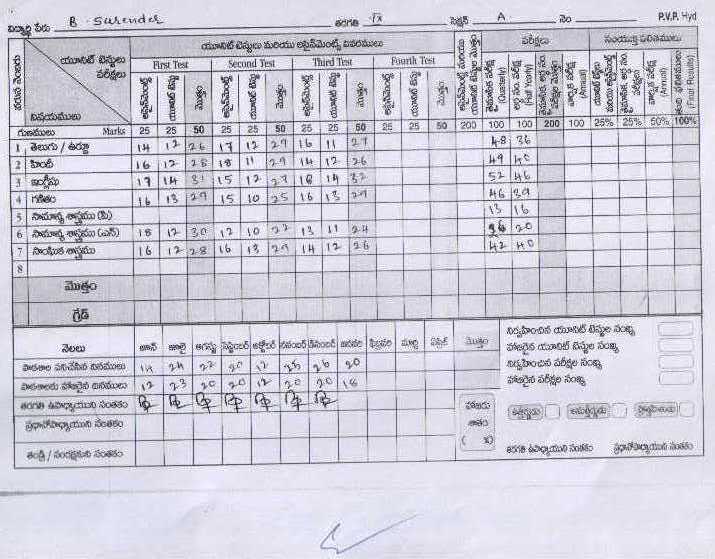 విద్యార్థి పేరు B. Surender తరగతి IX సెక్షన్ A నెం P.V.P. Hyd
యూనిట్ టెస్టులు మరియు అసైన్‌మెంట్స్ వివరములు పరీక్షలు సంయుక్త ఫలితములు
వరుస నెంబరు యూనిట్ టెస్టులు పరీక్షలు విషయములు
First Test Second Test Third Test Fourth Test
అసైన్‌మెంట్స్ యూనిట్ టెస్టు మొత్తం అసైన్‌మెంట్స్ యూనిట్ టెస్టు మొత్తం అసైన్‌మెంట్స్ యూనిట్ టెస్టు మొత్తం అసైన్‌మెంట్స్ యూనిట్ టెస్టు మొత్తం
(Quarterly) (Half Yearly) (Annual) (Annual) (Final Results)
గుణములు Marks 25 25 50 25 25 50 25 25 50 25 25 50 200 100 100 200 100 25% 25% 50% 100%
1 తెలుగు / ఉర్దూ 14 12 26 17 12 29 16 11 27 48 36
2 హిందీ 16 12 28 18 11 29 14 12 26 49 40
3 ఇంగ్లీషు 17 14 31 15 12 27 18 14 32 52 46
4 గణితం 16 13 29 15 10 25 16 13 29 46 39
5 సామాన్య శాస్త్రము (పి) 13 16
6 సామాన్య శాస్త్రము (ఎన్) 18 12 30 12 10 22 13 11 24 20
7 సాంఘిక శాస్త్రము 16 12 28 16 13 29 14 12 26 42 40
8
మొత్తం
గ్రేడ్
నెలలు జూన్ జూలై ఆగస్టు సెప్టెంబర్ అక్టోబర్ నవంబర్ డిసెంబర్ జనవరి ఫిబ్రవరి మార్చి ఏప్రిల్ మొత్తం
పాఠశాల పనిచేసిన దినములు 14 24 22 20 12 25 26 20
పాఠశాలకు హాజరైన దినములు 12 23 20 20 12 20 20 18
తరగతి ఉపాధ్యాయుని సంతకం
ప్రధానోపాధ్యాయుని సంతకం
తండ్రి / సంరక్షకుని సంతకం
నిర్వహించిన యూనిట్ టెస్టుల సంఖ్య
హాజరైన యూనిట్ టెస్టుల సంఖ్య
నిర్వహించిన పరీక్షల సంఖ్య
హాజరైన పరీక్షల సంఖ్య
హాజరు శాతం ( %)
ఉత్తీర్ణుడు అనుత్తీర్ణుడు
తరగతి ఉపాధ్యాయుని సంతకం ప్రధానోపాధ్యాయుని సంతకం